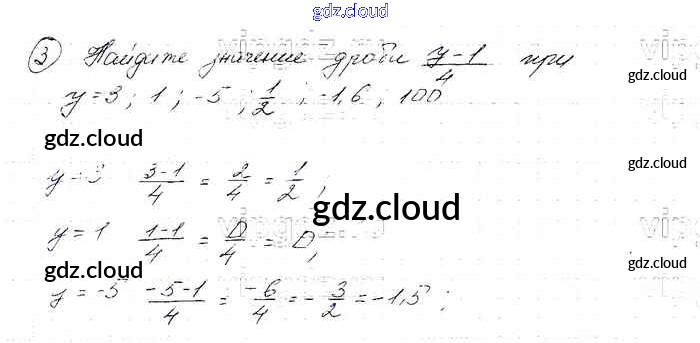 gdz.cloud
③ Найдите значение дроби (y-1)/4 при
y=3; 1; -5; 1/2; -1,6; 100
gdz.cloud
gdz.cloud
gdz.cloud
y=3 (3-1)/4 = 2/4 = 1/2;
gdz.cloud
gdz.cloud
y=1 (1-1)/4 = 0/4 = 0,
gdz.cloud
gdz.cloud
y=-5 (-5-1)/4 = -6/4 = -3/2 = -1,5;